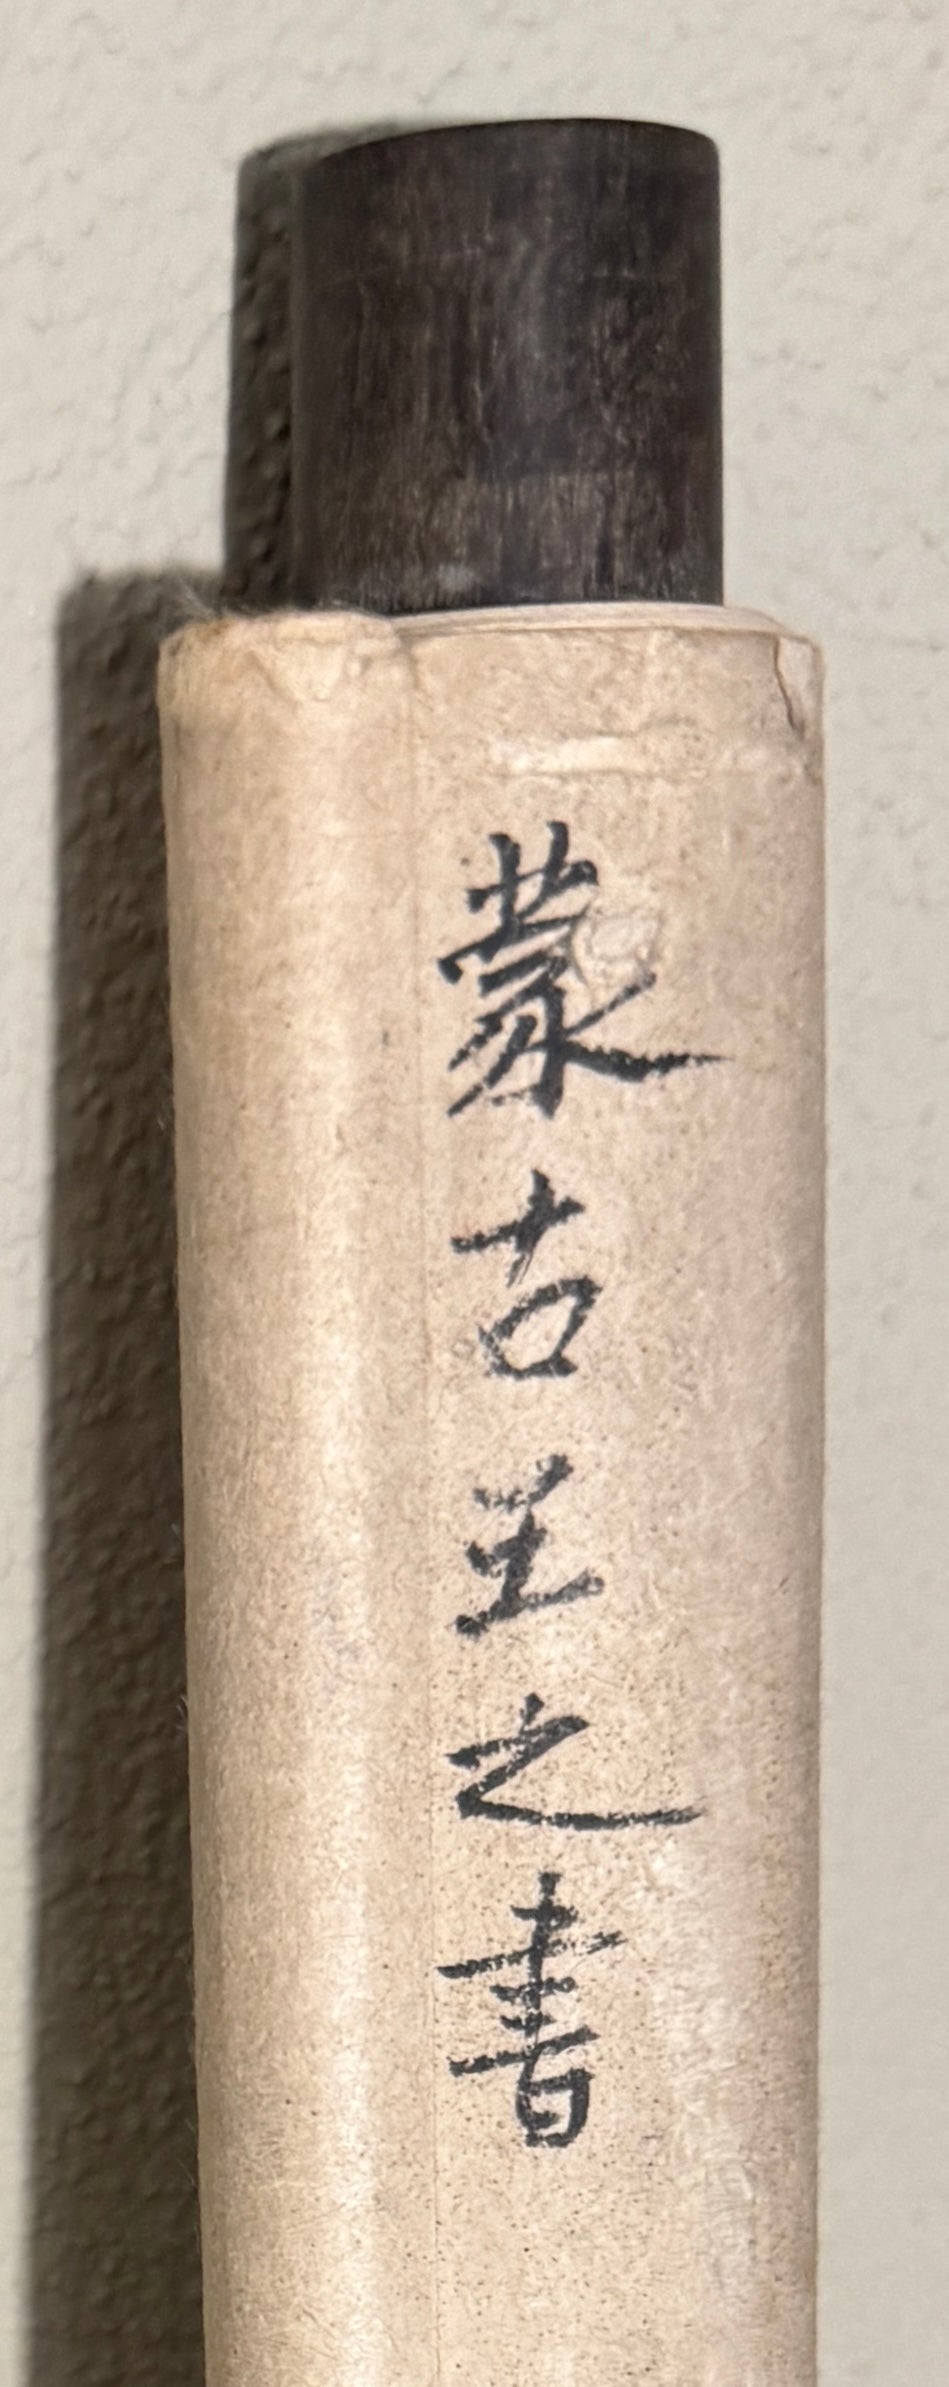 蒙古王之書